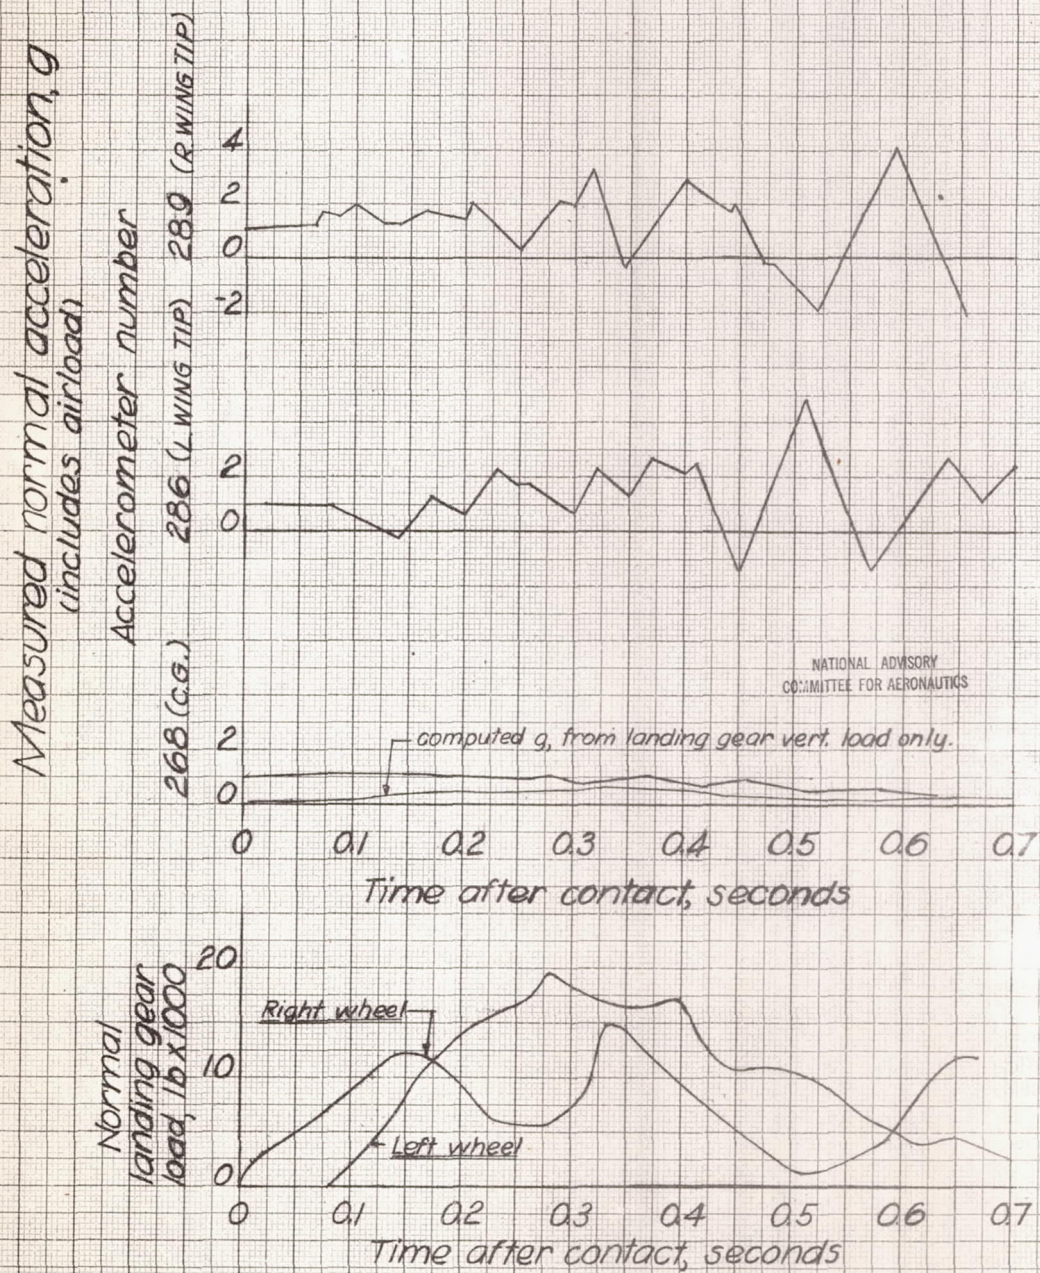 Measured normal acceleration, g
(includes airload)
Accelerometer number
289 (R WING TIP)
4
2
0
-2
286 (L WING TIP)
2
0
NATIONAL ADVISORY
COMMITTEE FOR AERONAUTICS
268 (C.G.)
2
computed g, from landing gear vert. load only.
0
0 0.1 0.2 0.3 0.4 0.5 0.6 0.7
Time after contact, seconds
Normal
landing gear
load, lb x 1000
20
Right wheel
10
Left wheel
0
0 0.1 0.2 0.3 0.4 0.5 0.6 0.7
Time after contact, seconds